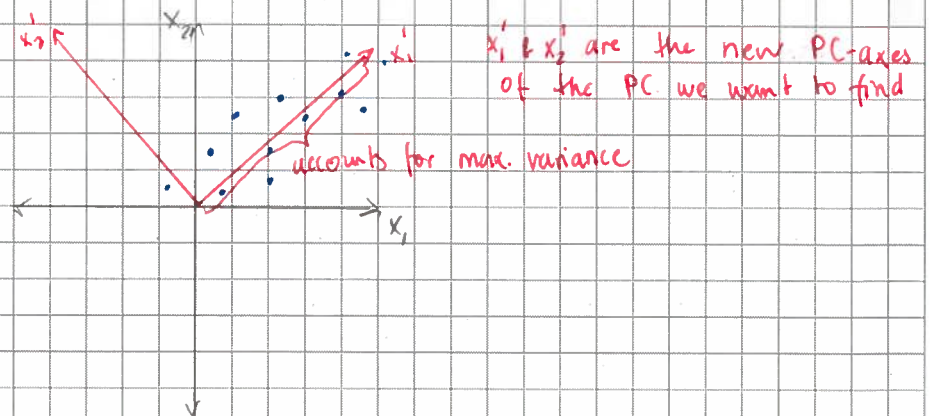 x₂'
x₂
x₁'
x₁' & x₂' are the new PC-axes
of the PC we want to find
accounts for max. variance
x₁